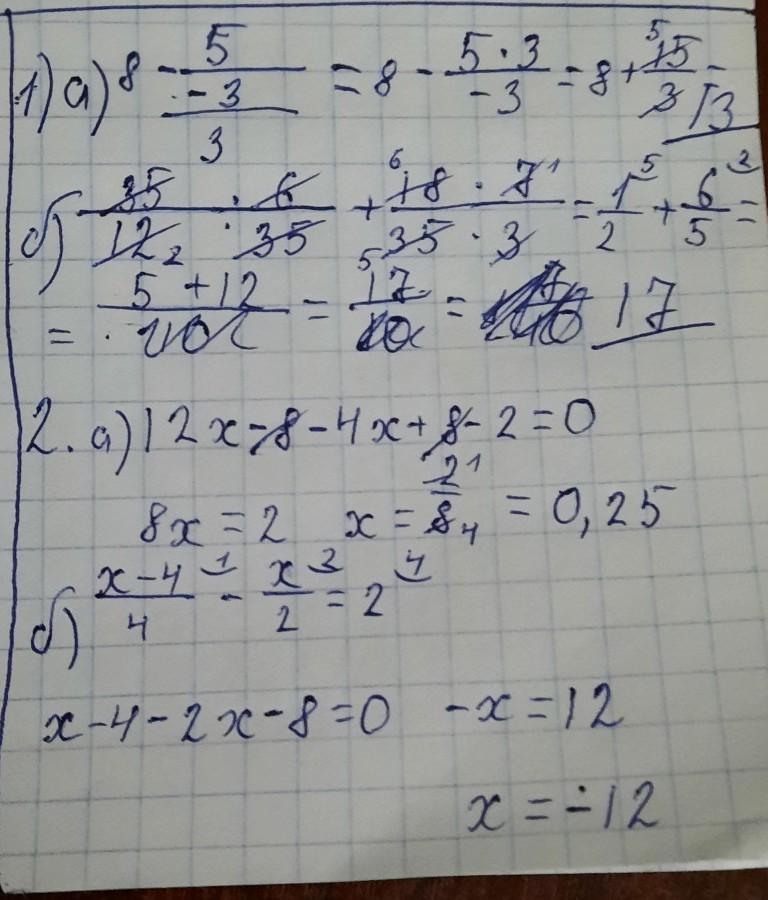 1) а) 8 - 5/(-3/3) = 8 - (5·3)/(-3) = 8 + 15/3 5 = 13
б) (35 · 6)/(12 2 · 35) + (18 6 · 7 1)/(35 5 · 3) = 1/2 5 + 6/5 2 =
= (5 + 12)/10 = 17/10 = 17
2. а) 12x - 8 - 4x + 8 - 2 = 0
8x = 2 x = 2 1/8 4 = 0,25
б) (x - 4)/4 1 - x/2 2 = 2 4
x - 4 - 2x - 8 = 0 -x = 12
x = -12